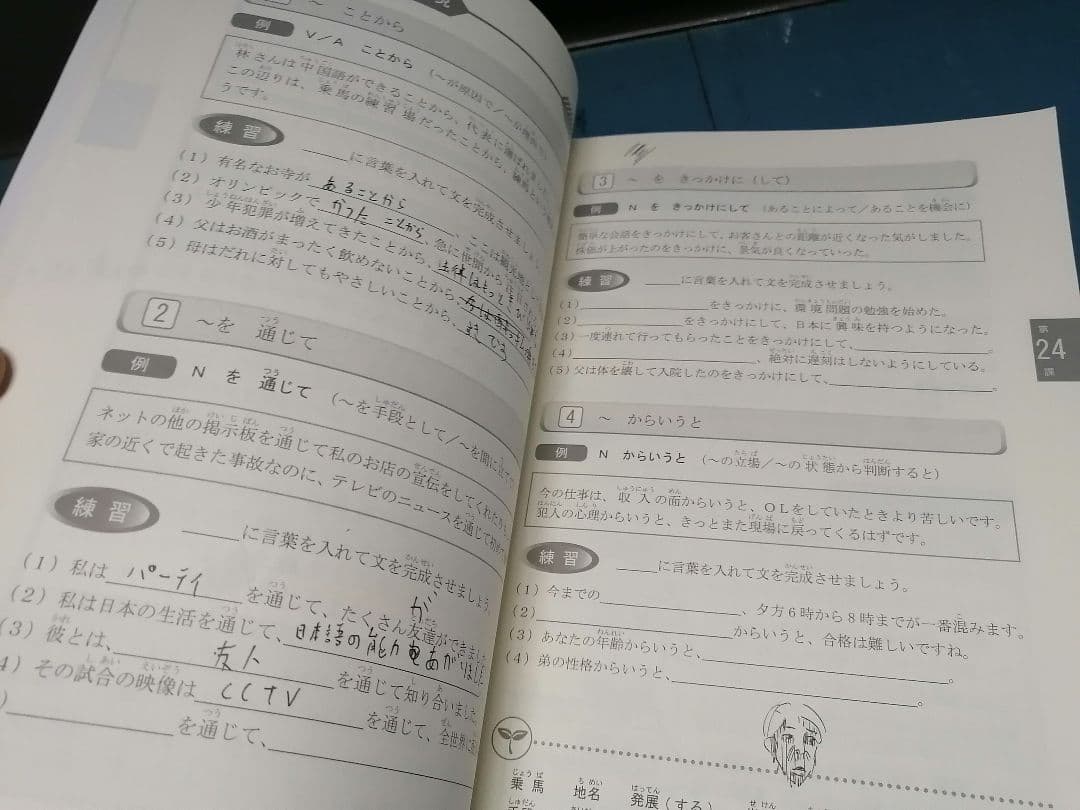 ～ ことから
例 V／A ことから （～が原因で／
林さんは中国語ができることから、代表に選ばれました
この辺りは、乗馬の練習場だったことから、
うです。
練習 ＿＿＿に言葉を入れて文を完成させましょう
（1）有名なお寺が あることから 、ここは観光地として
（2）オリンピックで かつたことから、急に世間から注目
（3）少年犯罪が増えてきたことから、法律はもっと
（4）父はお酒がまったく飲めないことから、
（5）母はだれに対してもやさしいことから、
2 ～を 通じて
例 N を 通じて （～を手段として／～を間に立て
ネットの他の掲示板を通じて私のお店の宣伝をしてくれたり
家の近くで起きた事故なのに、テレビのニュースを通じて初
練習 ＿＿＿に言葉を入れて文を完成させましょう。
（1）私は パーテイ を通じて、たくさん友達ができました
（2）私は日本の生活を通じて、日本語の能力があがりました
（3）彼とは、 友人 を通じて知り合いました。
4）その試合の映像は CCTV を通じて、全世界に
）＿＿＿を通じて、＿＿＿
3 ～ を きっかけに（して）
例 N を きっかけにして （あることによって／あることを機会に）
簡単な会話をきっかけにして、お客さんとの距離が近くなった気がしました。
株価が上がったのをきっかけに、景気が良くなっていった。
練習 ＿＿＿に言葉を入れて文を完成させましょう。
（1）＿＿＿をきっかけに、環境問題の勉強を始めた。
（2）＿＿＿をきっかけにして、日本に興味を持つようになった。
（3）一度連れて行ってもらったことをきっかけにして、＿＿＿。
（4）＿＿＿、絶対に遅刻はしないようにしている。
（5）父は体を壊して入院したのをきっかけにして、＿＿＿。
第24課
4 ～ からいうと
例 N からいうと （～の立場／～の状態から判断すると）
今の仕事は、収入の面からいうと、OLをしていたときより苦しいです。
犯人の心理からいうと、きっとまた現場に戻ってくるはずです。
練習 ＿＿＿に言葉を入れて文を完成させましょう。
（1）今までの＿＿＿、夕方6時から8時までが一番混みます。
（2）＿＿＿からいうと、合格は難しいですね。
（3）あなたの年齢からいうと、＿＿＿。
（4）弟の性格からいうと、＿＿＿。
乗馬 地名 発展（する）